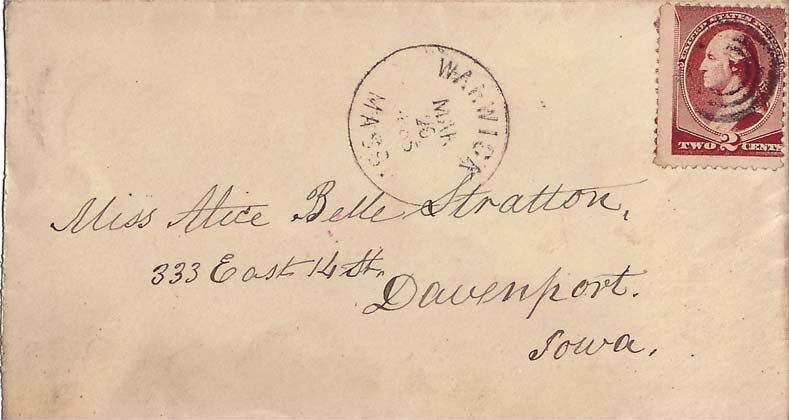 UNITED STATES POSTAGE
TWO 2 CENTS
WARWICK
MAR
MASS.
Miss Alice Belle Stratton,
333 East 14 St.
Davenport.
Iowa.